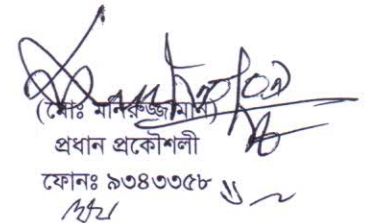 (মোঃ মনিরুজ্জামান)
প্রধান প্রকৌশলী
ফোনঃ ৯৩৪৩৩৫৮